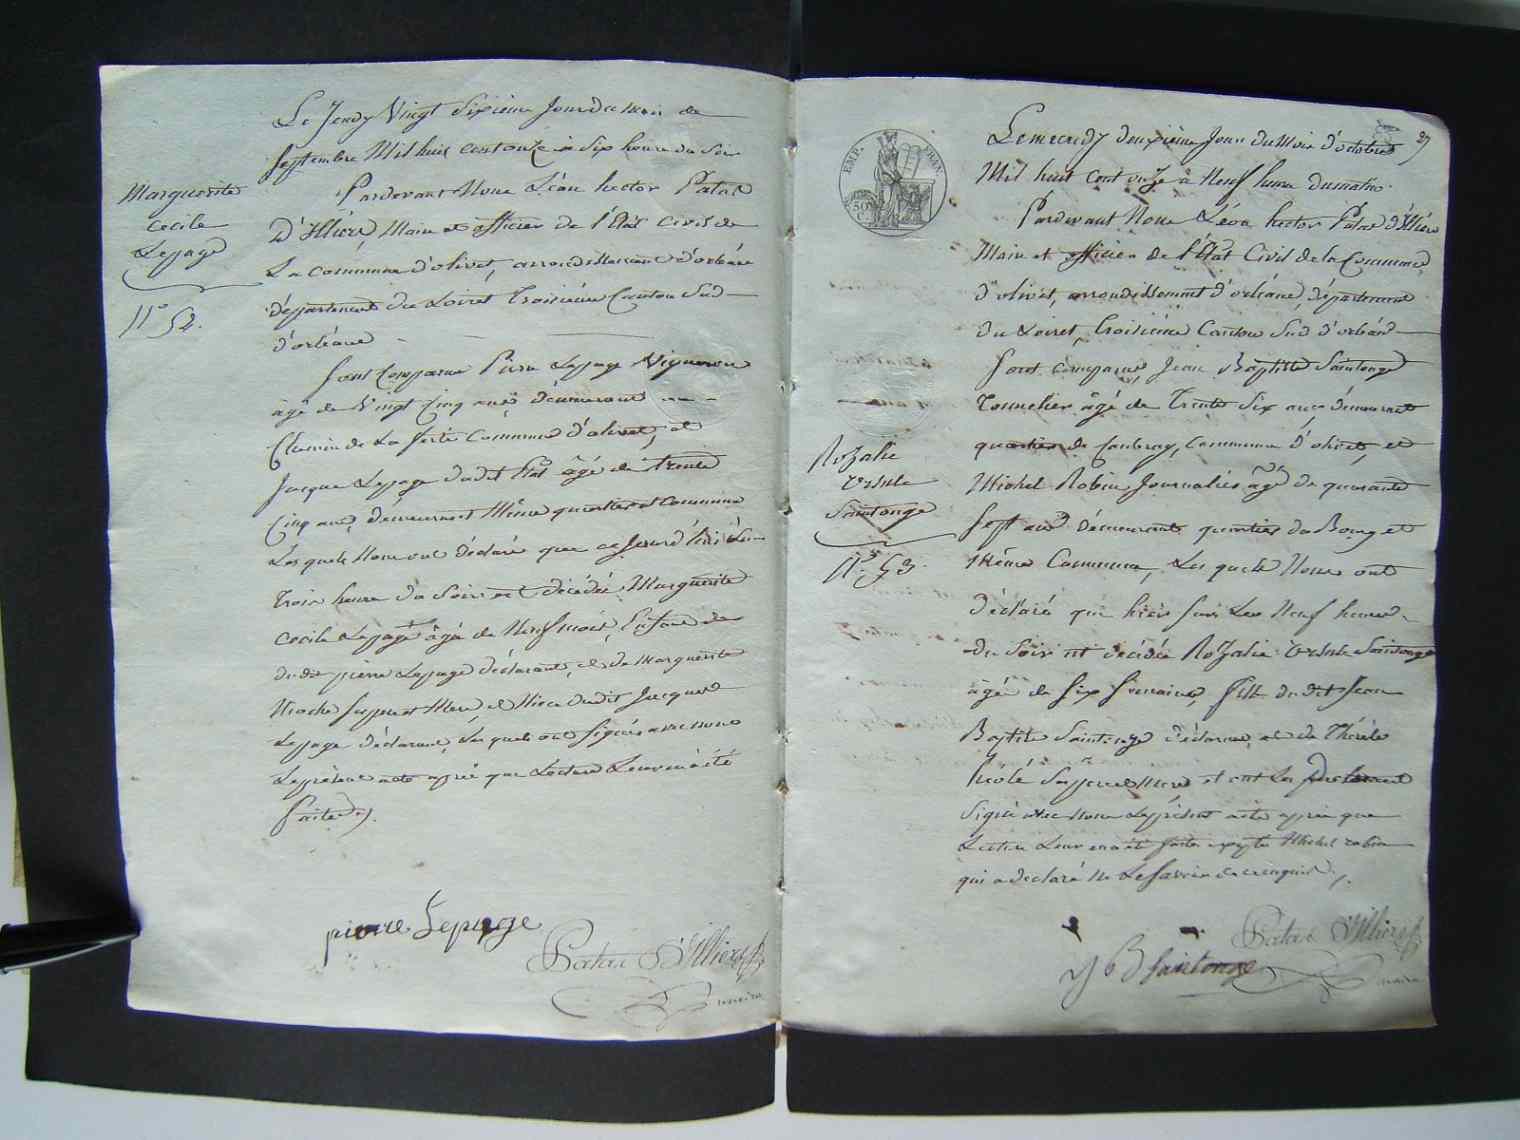 Le Jeudy Vingt Sixieme Jour du mois de
Septembre Mil huit cent onze à Six heure du Soir
Pardevant Nous Léon hector Patas
D'Illiers, Maire et officier de l'État Civil de
La Commune d'olivet, arrondissement d'orléans
département du Loiret Troisième Canton Sud
d'orléans
Marguerite
Cecile
Lepage
N° 52.
Sont Comparus Pierre Lepage Vigneron
âgé de Vingt Cinq ans demeurant
Chemin de La ferté Commune d'olivet, et
Jacque Lepage dudit État âgé de trente
Cinq ans, demeurant Même quartier et Commune
Lesquels Nous ont déclaré que ce Jourd'hui à
trois heure du Soir est décédée Marguerite
Cecile Lepage âgé de Neuf mois, Enfant de
du dit pierre Lepage déclarant, et de Marguerite
Son pere et Mere et Niece dudit Jacques
Lepage déclarant, Les quels ont Signé avec nous
Le présent acte après que Lecture Leur en a été
faite.
pierre Lepage
Patas D'Illiers
maire
27
EMP. FRAN.
50
C.
Le mecredy deuxième Jour du Mois d'octobre
Mil huit Cent onze à Neuf heure du matin.
Pardevant Nous Léon hector Patas d'Illiers
Maire et officier de l'État Civil de la Commune
d'olivet, arrondissement d'orléans, département
du Loiret, Troisième Canton Sud d'orléans
Sont comparus, Jean Baptiste Saintonge
Tonnelier âgé de Trente Six ans demeurant
quartier de Caubray, Commune d'olivet, et
Rozalie
Ursule
Saintonge
N° 53.
Michel Robin Journalier âgé de quarante
Sept ans demeurant quartier du Bourg et
Même Commune, Les quels Nous ont
déclaré que hier Sur Les Neuf heures
du Soir est décédée Rozalie Ursule Saintonge
âgé de Six Semaines, fille du dit Jean
Baptiste Saintonge déclarant, et de Thérèse
Ses pere et Mere et ont Les
Signé avec nous Le présent acte après que
Lecture Leur en a été faite excepté Michel robin
qui a declaré ne Le Savoir de ce enquis.
Patas D'Illiers
maire
J B Saintonge